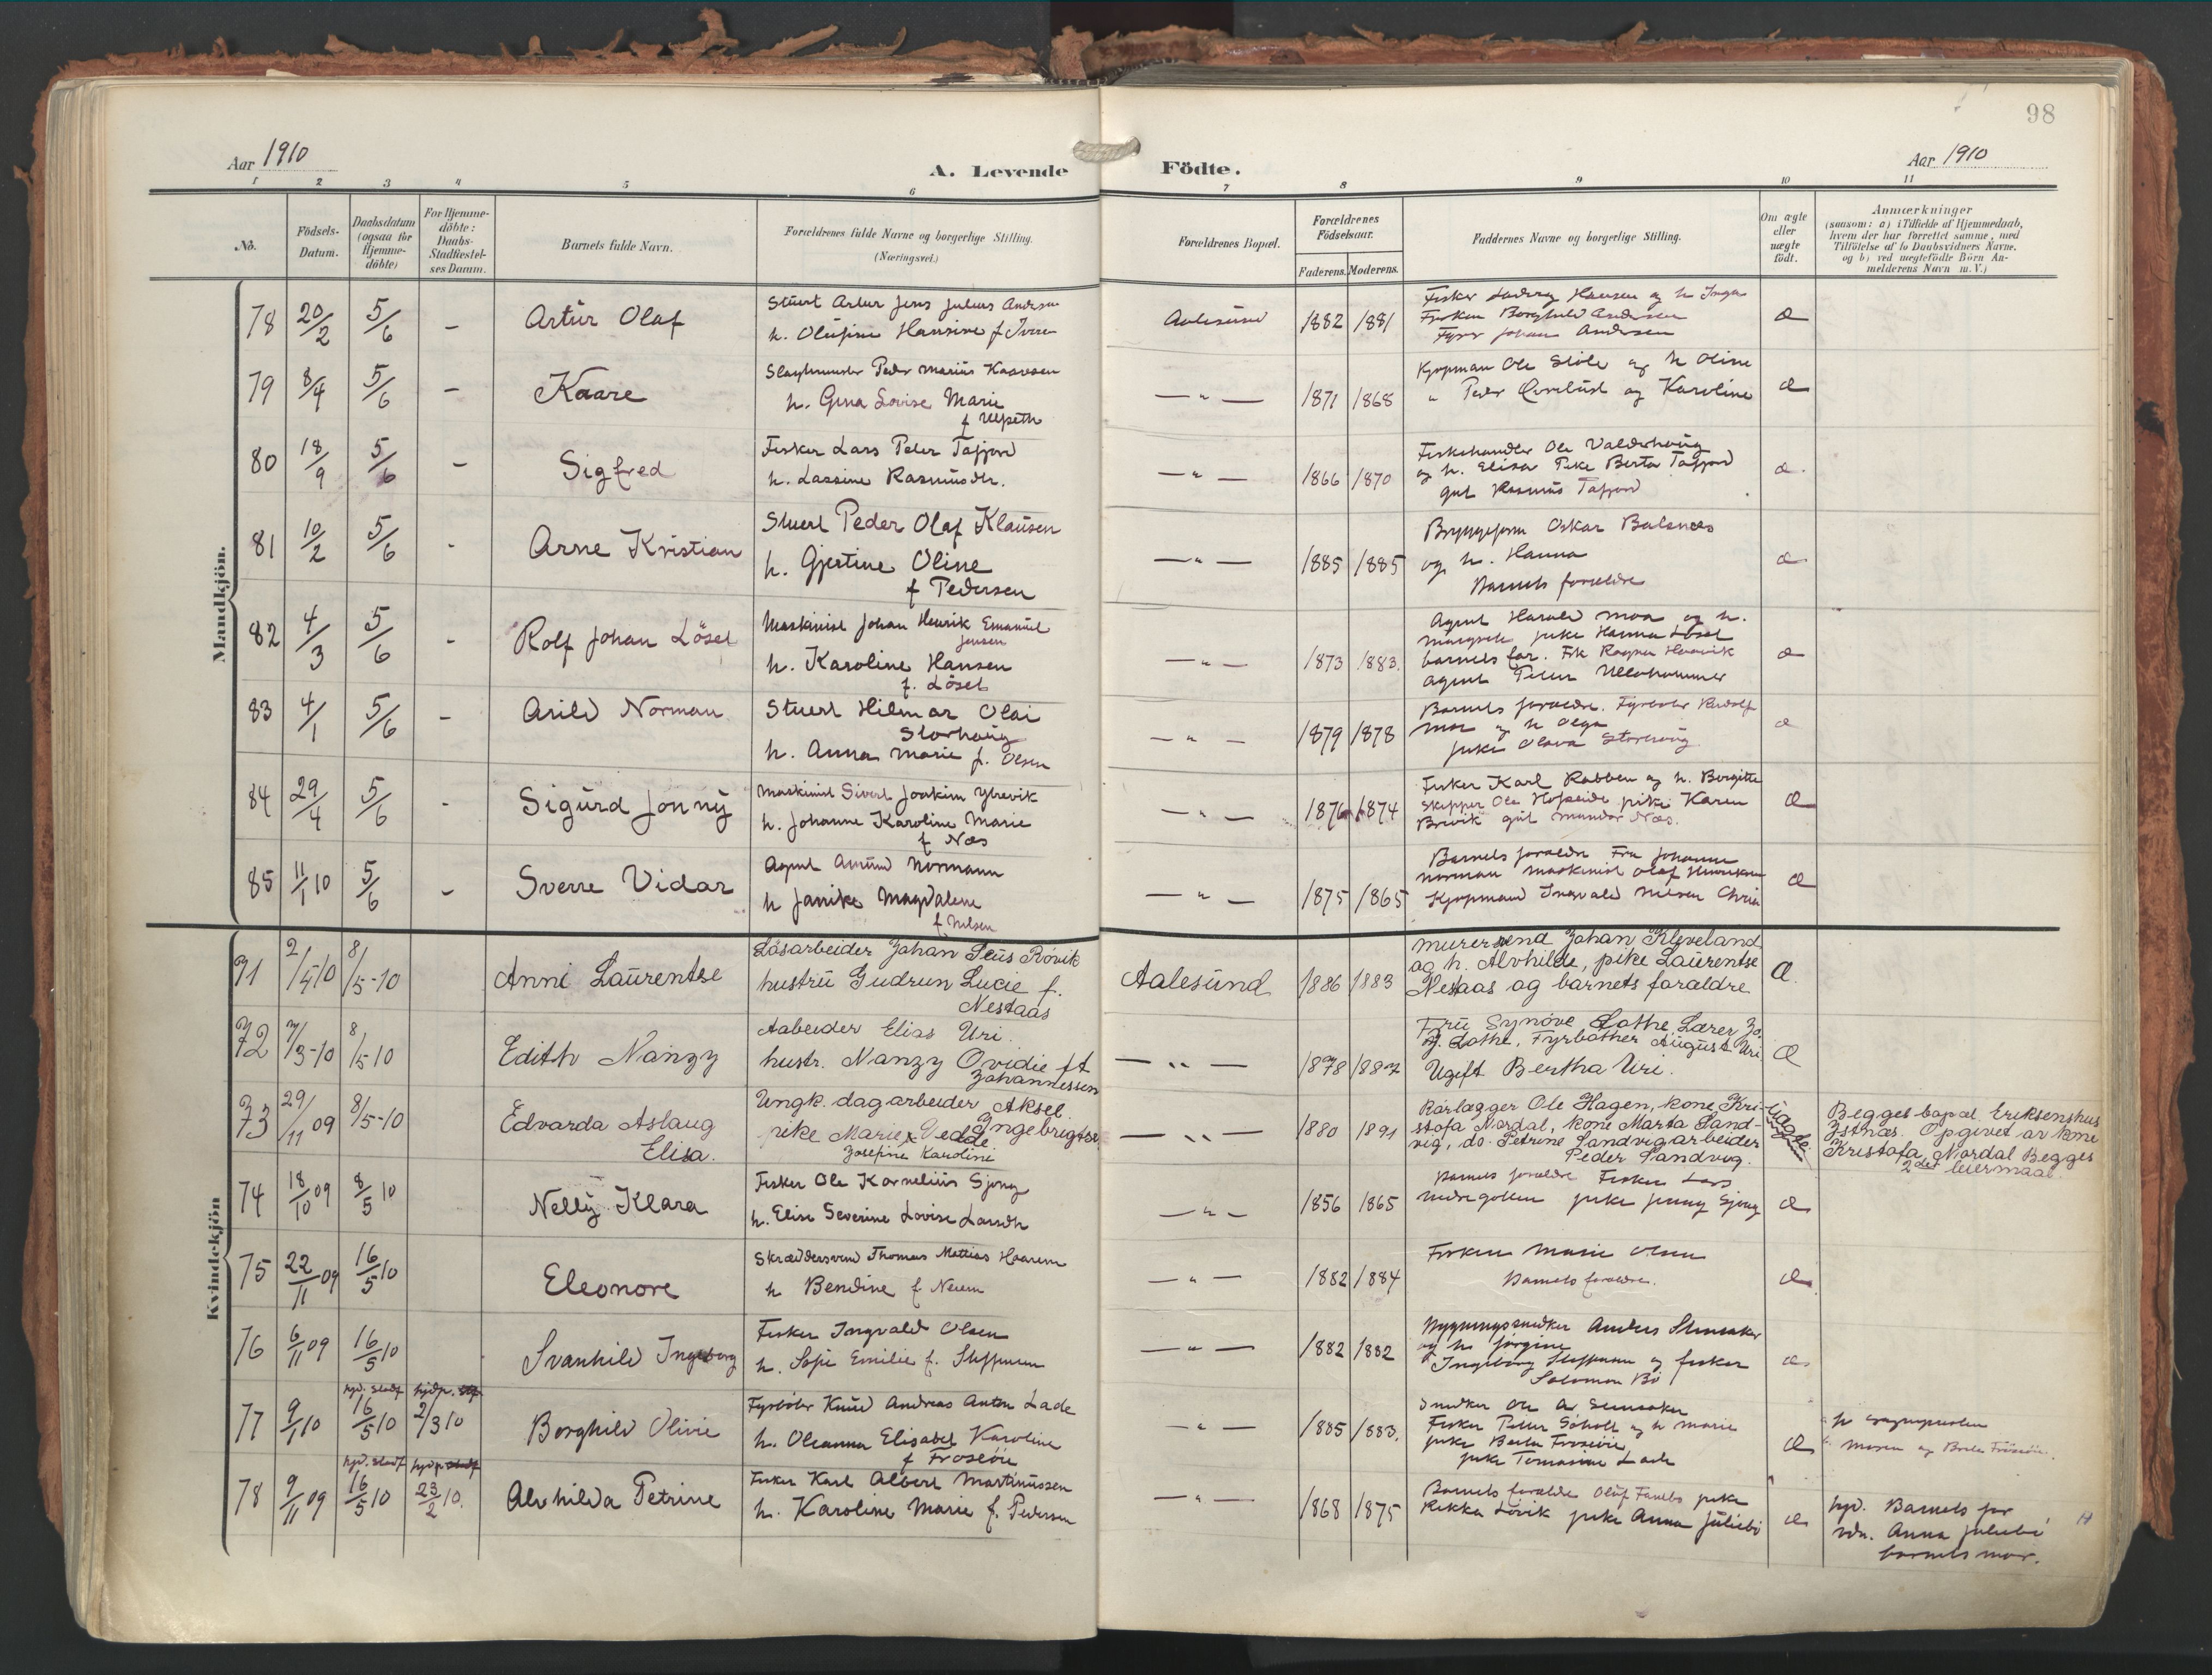 98
Aar 1910
A. Levende Födte.
Aar 1910
1 2 3 4 5 6 7 8 9 10 11
No.
Födsels-
Datum.
Daabsdatum
(ogsaa for
Hjemme-
döbte)
For Hjemme-
döbte:
Daabs-
Stadfæstel-
ses Datum.
Barnets fulde Navn.
Forældrenes fulde Navne og borgerlige Stilling.
(Næringsvei.)
Forældrenes Bopæl.
Forældrenes
Födselsaar.
Faderens. Moderens.
Faddernes Navne og borgerlige Stilling.
Om ægte
eller
uægte
födt.
Anmærkninger
(saasom: a) i Tilfælde af Hjemmedaab,
hvem der har forrettet samme, med
Tilföielse af to Daabsvidners Navne.
og b) ved uægtefödte Börn An-
melderens Navn m.V.)
Mandkjön.
78 20/2 5/6 - Artur Olaf
Stuert Artur Jens Julius Andersen
h. Olufine Hansine f Iversen
Aalesund 1882 1881
Fisker Ludvig Hansen og h Inga
Frøken Borghild Andersen
Fyrb Johan Andersen
æ
79 8/4 5/6 - Kaare
Peder Marius Kaaresen
h. Gina Lovise Marie
f Ulpeth
— " — 1871 1868
Kjøpman Ole Støle og h Oline
" Peder Qvælust og Karoline
æ
80 18/9 5/6 - Sigfred
Fisker Lars Peter Tafjord
h. Lassine Rasmusdtr.
— " — 1866 1870
Fiskehandler Ole Valderhaug
og h. Elisa Pike Berta Tafjord
gut Rasmus Tafjord
æ
81 10/2 5/6 - Arne Kristian
Stuert Peder Olaf Klausen
h. Gjertine Oline
f Pedersen
— " — 1885 1885
Oskar Balsnes
og h. Hanna
Barnets forældre
æ
82 4/3 5/6 - Rolf Johan Lösel
Maskinist Johan Henrik Emanuel
Jensen
h. Karoline Hansen
f. Lösel
— " — 1873 1883.
Agent Harald Moa og h.
Margrete pike Hanna Lösel
barnets far. Frk Ragna Haavik
agent Peter
æ
83 4/1 5/6 - Arild Norman
Stuert Hilmar Olai
Storhaug
h. Anna Marie f. Olsen
— " — 1879 1878
Barnets forældre. Fyrbøter Rudolf
Moe og h Olga
pike Olava Storhaug
æ
84 29/4 5/6 - Sigurd Jonny
Maskinist Sivert Joakim Ytrevik
h. Johanne Karoline Marie
f Næs
— " — 1876 1874
Fisker Karl Rabben og h. Bergitte
Skipper Ole Hofseide pike Karen
Brevik gut Mandor Næs.
æ
85 11/1 10 5/6 - Sverre Vidar
Agent Amund Normann
h Janike Magdalene
f. Nilsen
— " — 1875 1865
Barnets forældre Fru Johanne
Norman maskinist Olaf Henriksen
Kjøpmand Ingvald Nilsen Chria
æ
Kvindekjön
71 2/4 10 8/5-10 Anni Laurentse
Løsarbeider Johan Peüs Røvik
hustru Gudrun Lucie f.
Nestaas
Aalesund 1886 1883
Murersvend Johan Kleveland
og h. Alvhilde, pike Laurentse
Nestaas og barnets forældre
Æ.
72 7/3-10 8/5 10 Edith Nanzy
Aabeider Elias Uri.
hustr. Nanzy Ovidie ft
Johannessen
— " — 1878 1887
Frü Synöve Lothe, Lærer Jo.
J. Lothe, Fyrbøther August Uri
Ugift Bertha Uri.
Æ
73 29/11 09 8/5-10 Edvarda Aslaug
Elisa.
Ungk. dagarbeider Aksel
Ingebrigtsen
pike Marie Vedde
Josefine Karolini
— " — 1880 1891
Rørlægger Ole Hagen, kone Kri-
stofa Nordal, kone Marta Sand-
vig, do. Petrine Sandvig arbeider
Peder Sandvig.
Uægte.
Begges bopæl Eriksenshus
Ystnæs. Opgivet av kone
Kristofa Nordal Begges
2det leiermaal.
74 18/10 09 8/5 10 Nelly Klara
Fisker Ole Kornelius Sjong
h. Elise Severine Lovise Larsdtr
— " — 1856 1865
Barnets forældre Fisker Lars
Nedregotten pike Jenny Sjong
æ
75 22/11 09 16/5 10 Eleonore
Skræddersvend Thomas Mattias Haarem
h Bendine f Neren
— " — 1882 1884
Frøken Marie Olsen
Barnets forældre.
æ
76 6/11 09 16/5 10 Svanhild Ingeborg
Fisker Ingvald Olsen
h. Sofie Emilie f. Steffensen
— " — 1882 1882
Bygningssnedker Anders Stensaker
og h. Jørgine
Ingeborg Steffensen og fisker
Solomon Bö
æ
77 9/1 10 hjd. stadf 16/5 10 hjdp. 2/3 10 Borghild Olivie
Fyrbøter Knud Andreas Anton Lade
h. Oleanna Elisabet Karoline
f Frøseöie
— " — 1885 1883.
Snedker Ole A. Stensaker
Fisker Petter Söholt og h Marie
pike Berta Frøseöie
pike Tomasine Lade
æ
moren og Berta Frøseöie.
78 9/11 09 hjd. stadf 16/5 10 hjdp. stadf 23/2 10. Alvhilda Petrine
Fisker Karl Albert Martinussen
h. Karoline Marie f. Pedersen
— " — 1868 1875
Barnets forældre Oluf pike
Rikka Lövik pike Anna Juliebö
æ
hjd. Barnets far
vdn. Anna Juliebö
barnets mor.